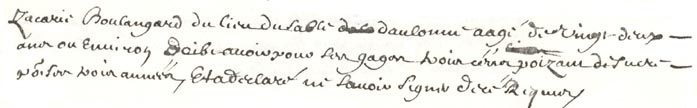 Zacarie Boulangard du lieu du sable daulonne aagé de vingt deux
ans ou Environ Doibt avoir pour ses gages trois cens poizant de sucre
trois année, Et a declaré ne scavoir signer de ce Requis